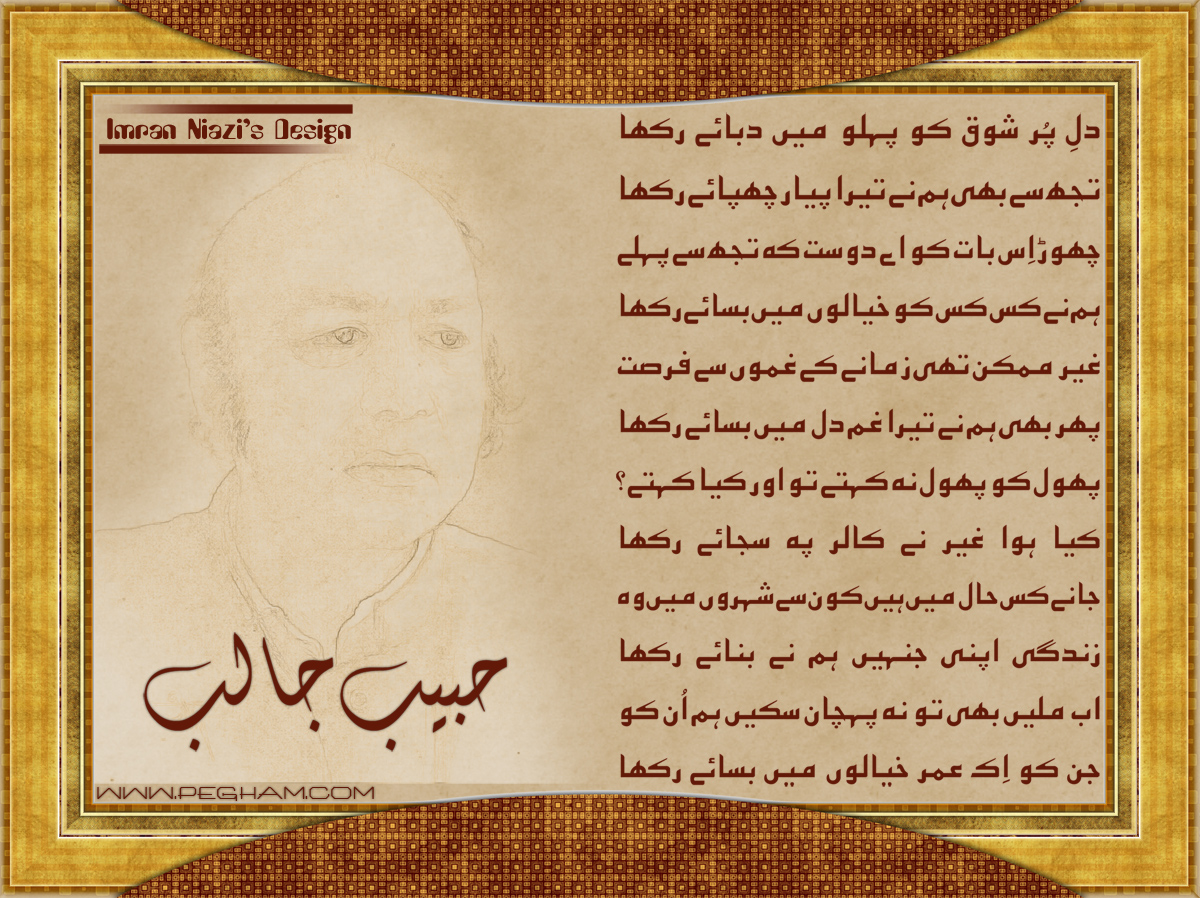 Imran Niazi's Design
دلِ پُر شوق کو پہلو میں دبائے رکھا
تجھ سے بھی ہم نے تیرا پیار چھپائے رکھا
چھوڑ اِس بات کو اے دوست کہ تجھ سے پہلے
ہم نے کس کس کو خیالوں میں بسائے رکھا
غیر ممکن تھی زمانے کے غموں سے فرصت
پھر بھی ہم نے تیرا غم دل میں بسائے رکھا
پھول کو پھول نہ کہتے تو اور کیا کہتے؟
کیا ہوا غیر نے کالر پہ سجائے رکھا
جانے کس حال میں ہیں کون سے شہروں میں وہ
زندگی اپنی جنہیں ہم نے بنائے رکھا
اب ملیں بھی تو نہ پہچان سکیں ہم اُن کو
جن کو اِک عمر خیالوں میں بسائے رکھا
حبیب جالب
WWW.PEGHAM.COM